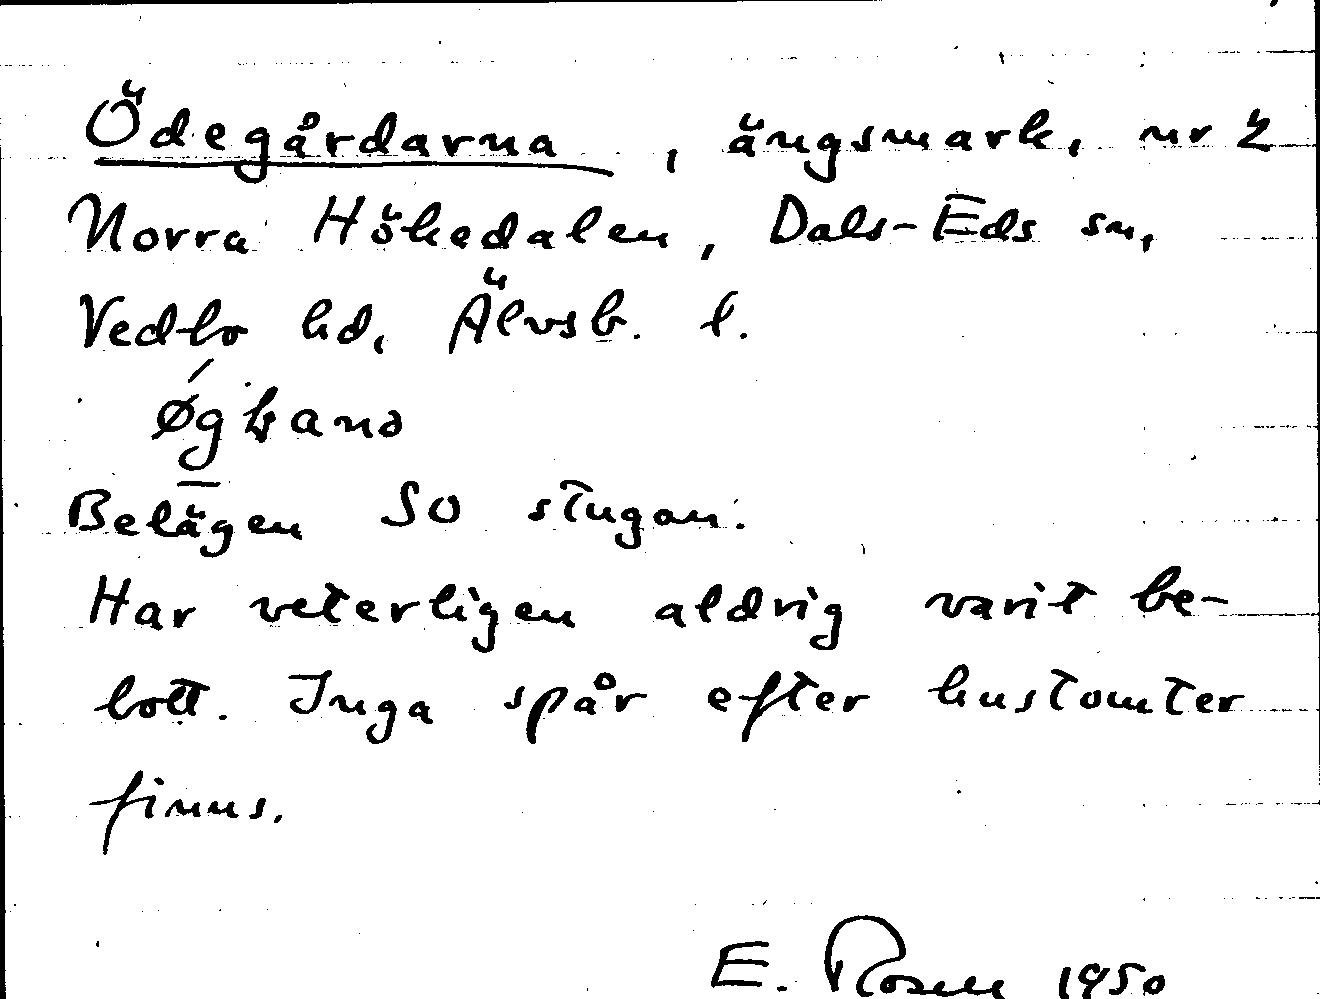 Ödegårdarna, ängsmark, nr 2
Norra Hökedalen, Dals-Eds sn,
Vedbo hd, Älvsb. l.
Belägen SO stugan.
Har veterligen aldrig varit be-
bott. Inga spår efter hustomter
finns.
E. Rosell 1950